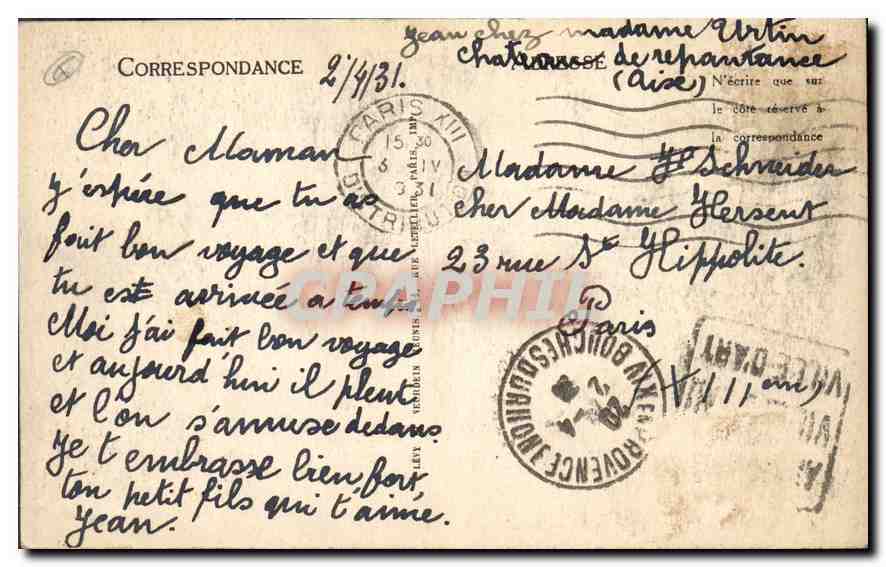 Jean chez madame Urtin
Chateau de repantance
(Aise)
CORRESPONDANCE
2/4/31.
ADRESSE
N'écrire que sur
le côté réservé à
la correspondance
PARIS XIII
15 30
3 IV
31
DISTRIBUTION
Cher Maman
J'espére que tu as
fait bon voyage et que
tu est arrivée a temps
Moi j'ai fait bon voyage
et aujourd'hui il pleut
et l'on s'amuse dedans
Je t embrasse bien fort
ton petit fils qui t'aime.
Jean.
Madame Schneider
cher Madame Hersent
23 rue St Hippolite.
Paris
XIII eme
LÉVY ET NEURDEIN RÉUNIS, 44, RUE LETELLIER, PARIS. IMP.
CPAPHIL
AIX EN PROVENCE BOUCHES DU RHONE
VILLE D'ART